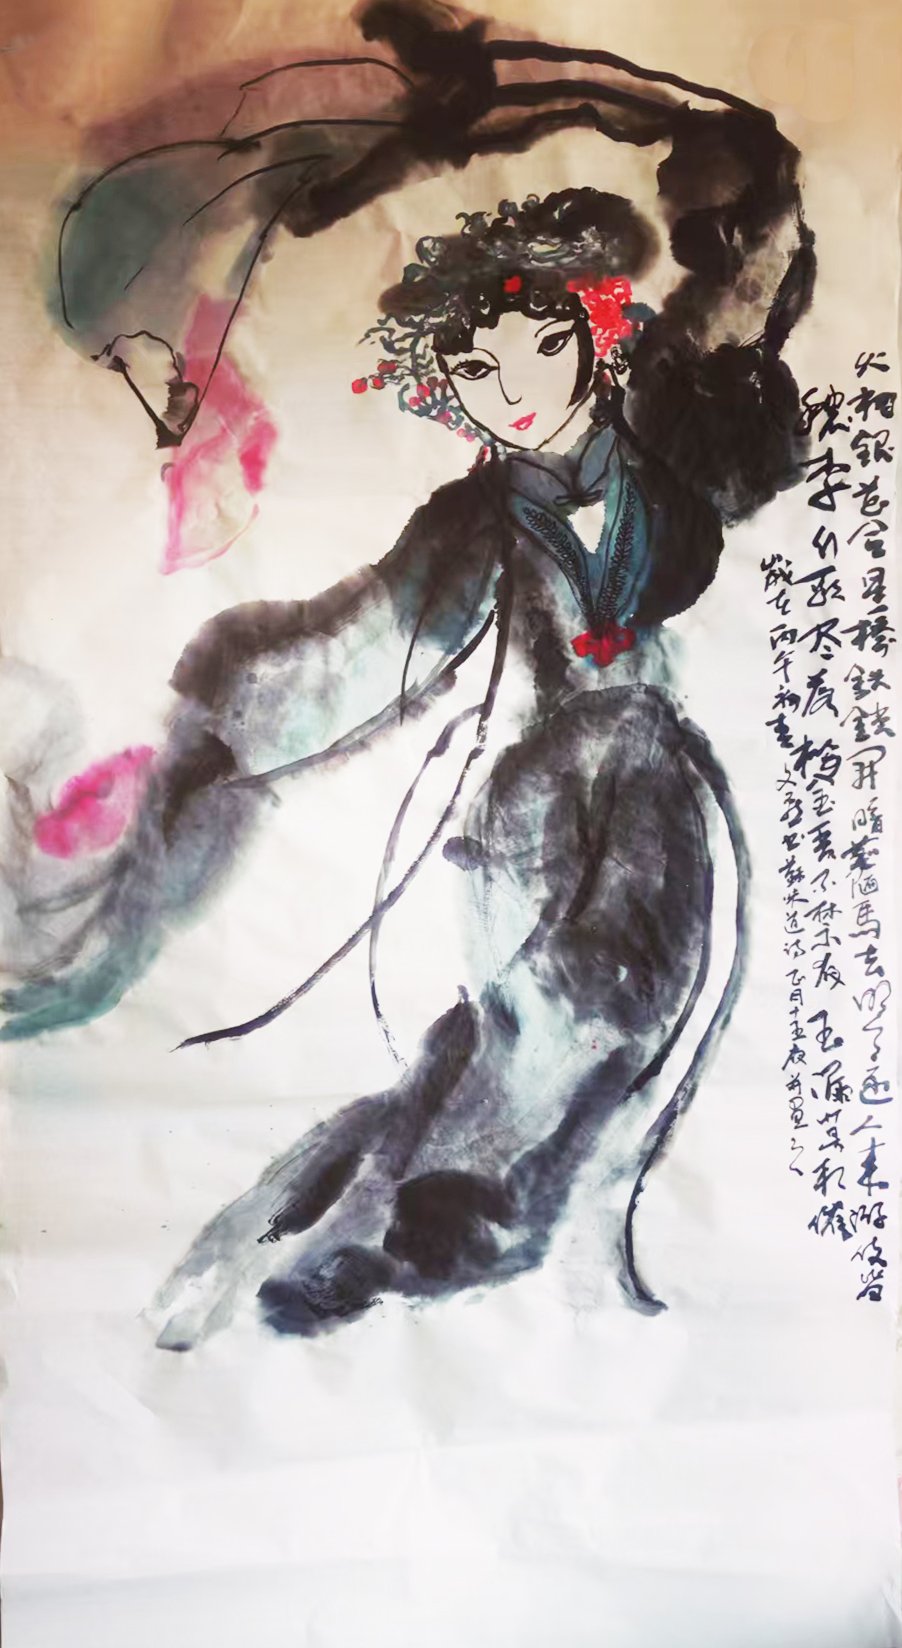 火树银花合星橋鉄鎖開暗塵随馬去明月逐人来游伎皆
穠李行歌尽落梅金吾不禁夜玉漏莫相催
歲在丙午初春文书蘇味道诗正月十五夜並画之